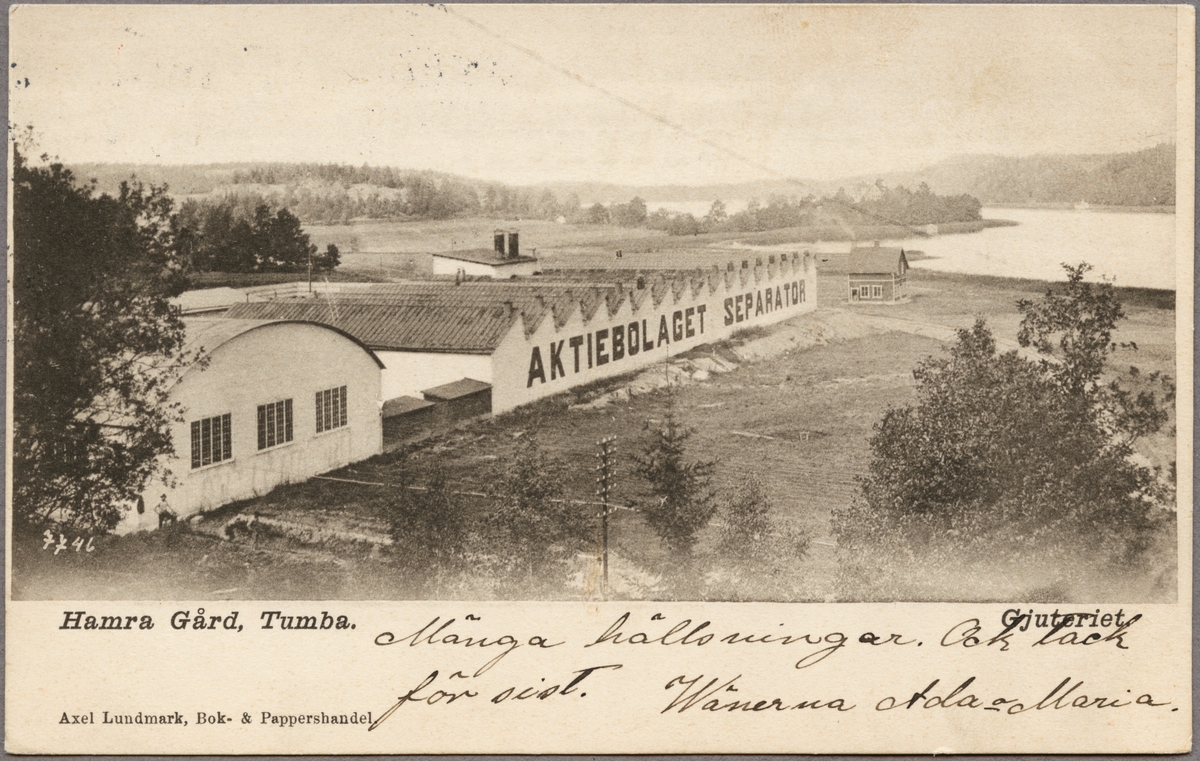 AKTIEBOLAGET SEPARATOR
7746
Hamra Gård, Tumba.
Gjuteriet.
Många hälsningar. Ock tack
för sist. Wänerna Ada o Maria.
Axel Lundmark, Bok- & Pappershandel.